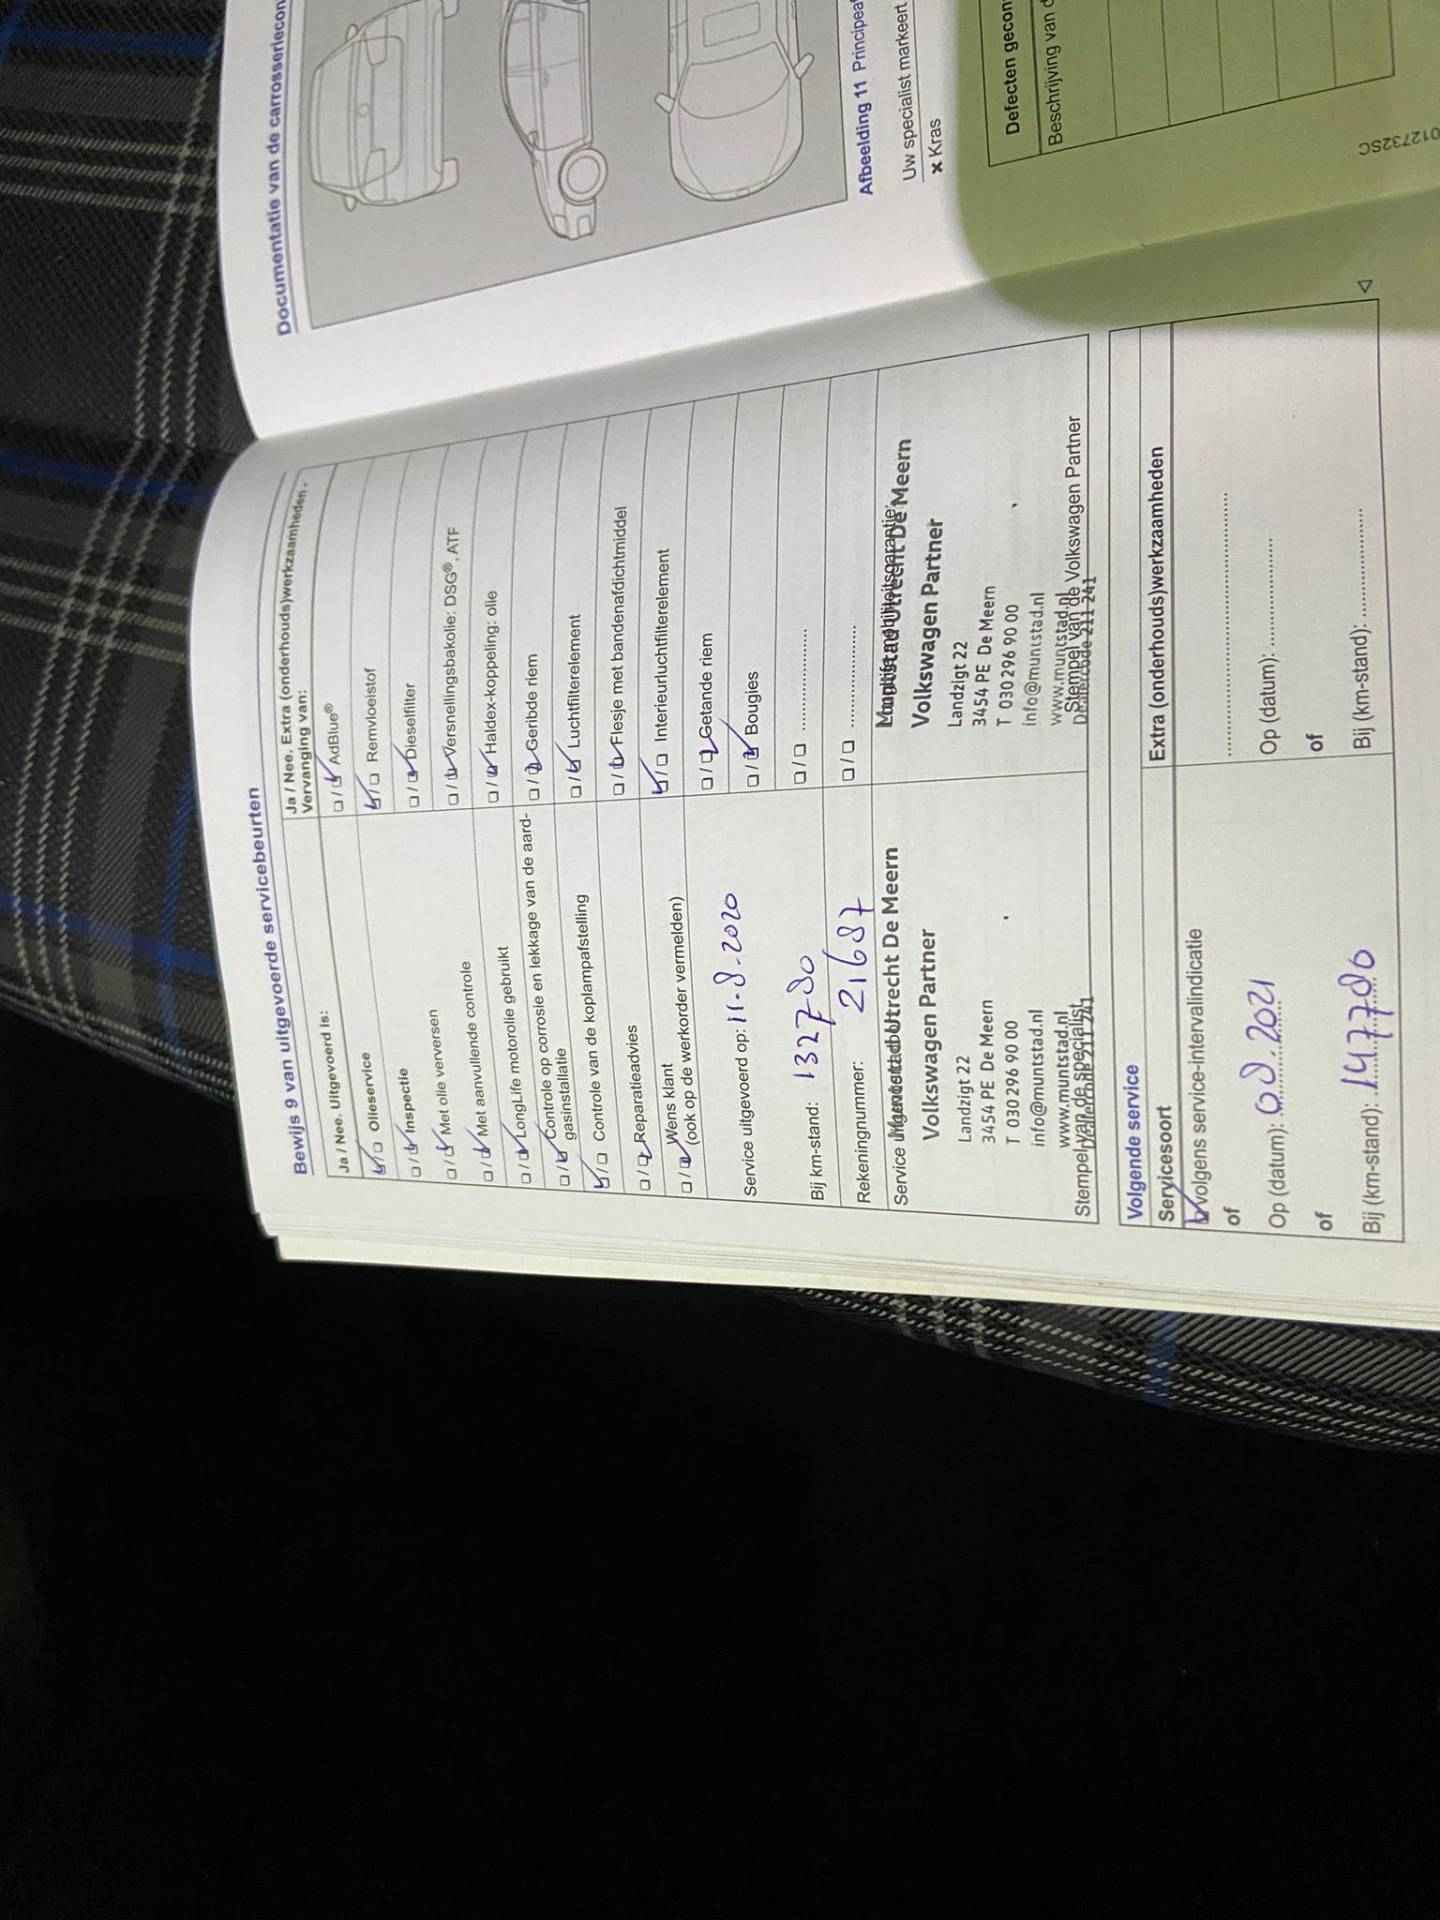 Bewijs 9 van uitgevoerde servicebeurten
Ja / Nee. Uitgevoerd is:
❑/❑ Olieservice
❑/❑ Inspectie
❑/❑ Met olie verversen
❑/❑ Met aanvullende controle
❑/❑ LongLife motorolie gebruikt
❑/❑ Controle op corrosie en lekkage van de aard-
gasinstallatie
❑/❑ Controle van de koplampafstelling
❑/❑ Reparatieadvies
❑/❑ Wens klant
(ook op de werkorder vermelden)
Service uitgevoerd op: 11-8-2020
Bij km-stand: 132780
Rekeningnummer: 21687
Service
Utrecht De Meern
Volkswagen Partner
Landzigt 22
3454 PE De Meern
T 030 296 90 00
info@muntstad.nl
www.muntstad.nl
Stempel van de specialist
211 241
Ja / Nee. Extra (onderhouds)werkzaamheden -
Vervanging van:
❑/❑ AdBlue®
❑/❑ Remvloeistof
❑/❑ Dieselfilter
❑/❑ Versnellingsbakolie: DSG®, ATF
❑/❑ Haldex-koppeling: olie
❑/❑ Geribde riem
❑/❑ Luchtfilterelement
❑/❑ Flesje met bandenafdichtmiddel
❑/❑ Interieurluchtfilterelement
❑/❑ Getande riem
❑/❑ Bougies
❑/❑ ....................
❑/❑ ....................
Muntstad Utrecht De Meern
Volkswagen Partner
Landzigt 22
3454 PE De Meern
T 030 296 90 00
info@muntstad.nl
www.muntstad.nl
Stempel van de Volkswagen Partner
Dealercode 211 241
Volgende service
Servicesoort
volgens service-intervalindicatie
of
Op (datum): 08.2021
of
Bij (km-stand): 147786
Extra (onderhouds)werkzaamheden
....................
Op (datum): ....................
of
Bij (km-stand): ....................
Documentatie van de carrosseriecon
Afbeelding 11 Principeaf
Uw specialist markeert
× Kras
Defecten gecon
Beschrijving van d
012732SC